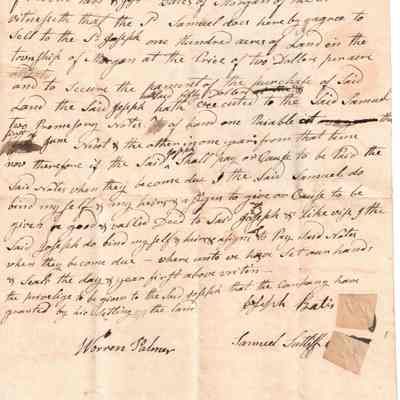 witnesseth that the Sd Samuel does hereby agree to
Sell to the Sd Joseph one hundred acres of Land in the
township of Morgan at the Price of two Dollars per acre
and to Secure the payment of the purchase of Said
Land the Said Joseph hath executed to the Said Samuel
two Promessory Notes of hand one Paiable the
first of June Next & the other in one year from that time
now therefore if the Said Joseph Shall pay or Cause to be Paid the
Said Notes when they become due I the Said Samuel do
bind my Self & my heirs & asigns to give or Cause to be
given a good & valled Deed to Said Joseph & Like wise I the
Said Joseph do bind my Self & heirs & asigns to Pay Said Notes
when they become due - where unto we have Set our hands
& Seals the day & year first above writen -
the privelige to be given to the Said Joseph that the Company have
granted by his Settling the land
Joseph
Warren Palmer
Samuel